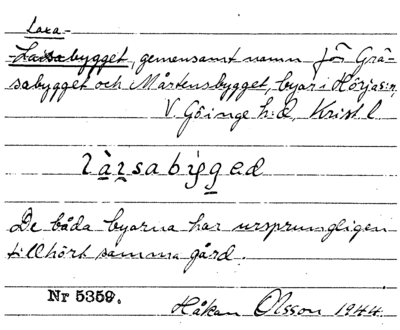 Laxa-
Lassabygget, gemensamt namn för Grä-
sabygget och Mårtensbygget, byar i Hörja s:n,
V. Göinge h:d, Krist. l
làr̥sabýged
De båda byarna har ursprungligen
tillhört samma gård.
Nr 5359.
Håkan Olsson 1944